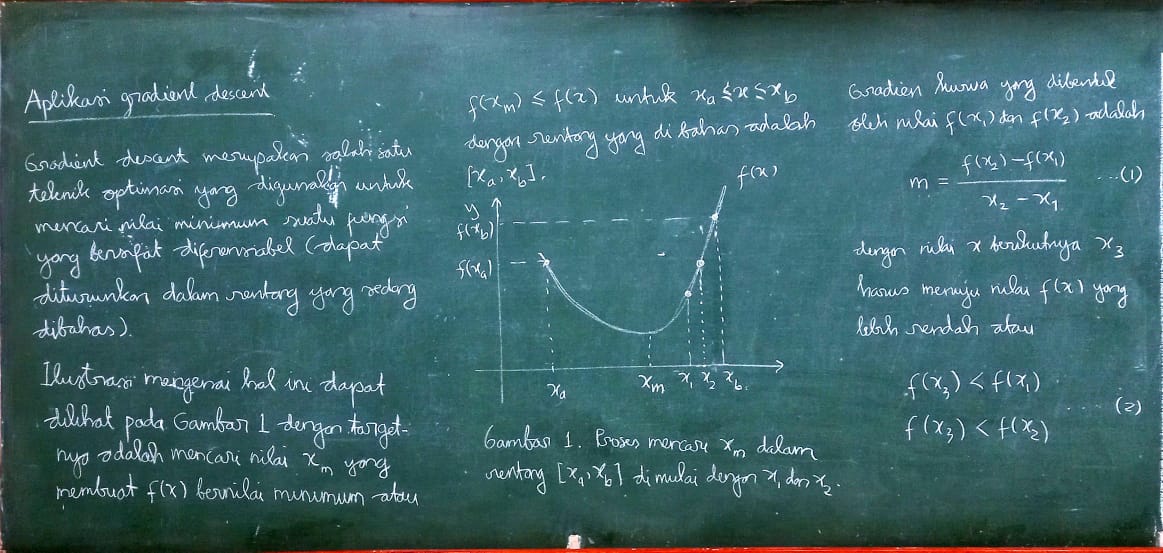 Aplikasi gradient descent
Gradient descent merupakan salah satu
teknik optimasi yang digunakan untuk
mencari nilai minimum suatu fungsi
yang bersifat diferensiabel (dapat
diturunkan dalam rentang yang sedang
dibahas).
Ilustrasi mengenai hal ini dapat
dilihat pada Gambar 1 dengan target-
nya adalah mencari nilai xₘ yang
membuat f(x) bernilai minimum atau
f(xₘ) ≤ f(x) untuk xₐ ≤ x ≤ x_b
dengan rentang yang di bahas adalah
[xₐ, x_b].
y
f(x_b)
f(xₐ)
f(x)
xₐ xₘ x₁ x₂ x_b
Gambar 1. Proses mencari xₘ dalam
rentang [xₐ, x_b] dimulai dengan x₁ dan x₂.
Gradien kurva yang dibentuk
oleh nilai f(x₁) dan f(x₂) adalah
m = (f(x₂) − f(x₁)) / (x₂ − x₁) ...(1)
dengan nilai x berikutnya x₃
harus menuju nilai f(x) yang
lebih rendah atau
f(x₃) < f(x₁)
.... (2)
f(x₃) < f(x₂)